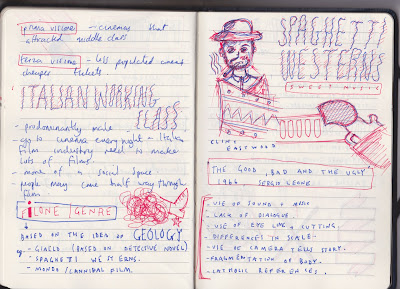 prima visione - cinemas that
attracted middle class
terza visione - less populated areas
cheaper tickets.
ITALIAN WORKING
CLASS
- predominantly male
- go to cinema every night - Italian
film industry need to make
lots of films.
- more of a social space
- people may come half way through
film
FILONE / GENRE
BASED ON THE IDEA OF GEOLOGY
eg - GIALLO (BASED ON DETECTIVE NOVEL)
- SPAGHETTI WESTERNS.
- MONDO/CANNIBAL FILM.
SPAGHETTI
WESTERNS
SWEET MUSIC
CLINT
EASTWOOD
'THE GOOD, BAD AND THE UGLY'
1966, SERGIO LEONE
- USE OF SOUND + MUSIC
- LACK OF DIALOGUE.
- USE OF EYE LINE + CUTTING
- DIFFERENCES IN SCALE.
- USE OF CAMERA TELLS STORY.
- FRAGMENTATION OF BODY.
- CATHOLIC REFERENCES.